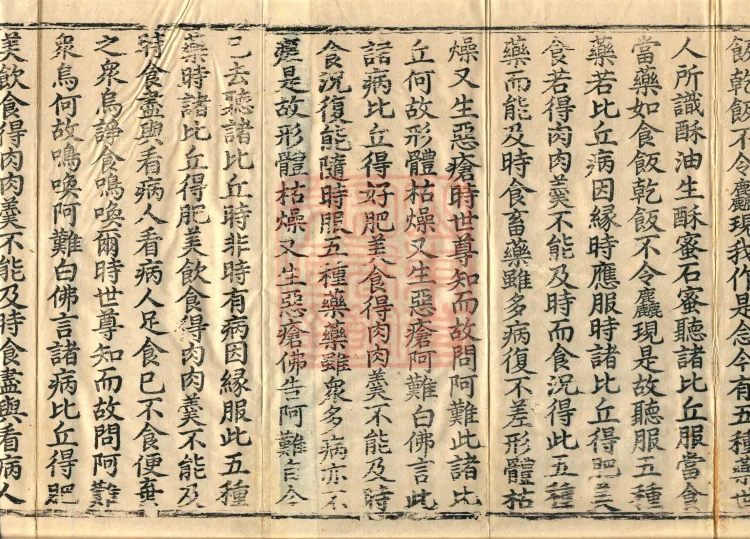 飯乾飯不令麤現我作是念今有五種藥世
人所識酥油生酥蜜石蜜聽諸比丘服當食
當藥如食飯乾飯不令麤現是故聽服五種
藥若比丘病因緣時應服時諸比丘得肥美
食若得肉肉羹不能及時而食況得此五種
藥而能及時食畜藥雖多病復不差形體枯
燥又生惡瘡時世尊知而故問阿難此諸比
丘何故形體枯燥又生惡瘡阿難白佛言此
諸病比丘得好肥美食得肉肉羹不能及時
食況復能隨時服五種藥藥雖衆多病亦不
瘥是故形體枯燥又生惡瘡佛告阿難自今
已去聽諸比丘時非時有病因緣服此五種
藥時諸比丘得肥美飲食得肉肉羹不能及
時食盡與看病人看病人足食已不食便棄
之衆烏諍食鳴喚爾時世尊知而故問阿難
衆烏何故鳴喚阿難白佛言諸病比丘得肥
美飲食得肉肉羹不能及時食盡與看病人